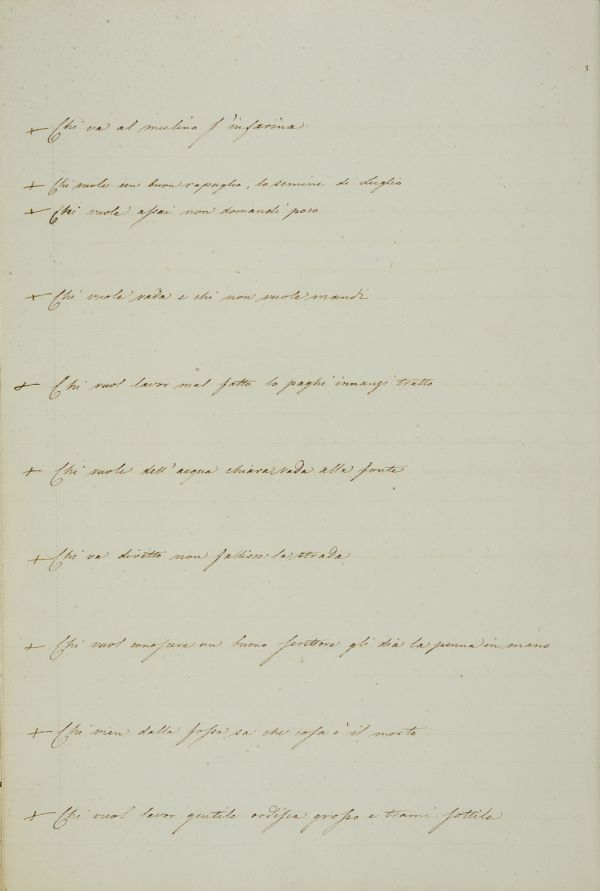 + Chi va al mulino s'infarina
+ Chi vuole un buon rapuglio, lo semini di Luglio
+ Chi vuole assai non domandi poco
+ Chi vuole vada e chi non vuole mandi
+ Chi vuol lavor mal fatto lo paghi innanzi tratto
+ Chi vuole dell'acqua chiara vada alla fonte
+ Chi va diritto non fallisce la strada
+ Chi vuol conoscere un buono scrittore gli dia la penna in mano
+ Chi vien dalla fossa sa che cosa è il morto
+ Chi vuol lavor gentile ordisca grosso e trami sottile